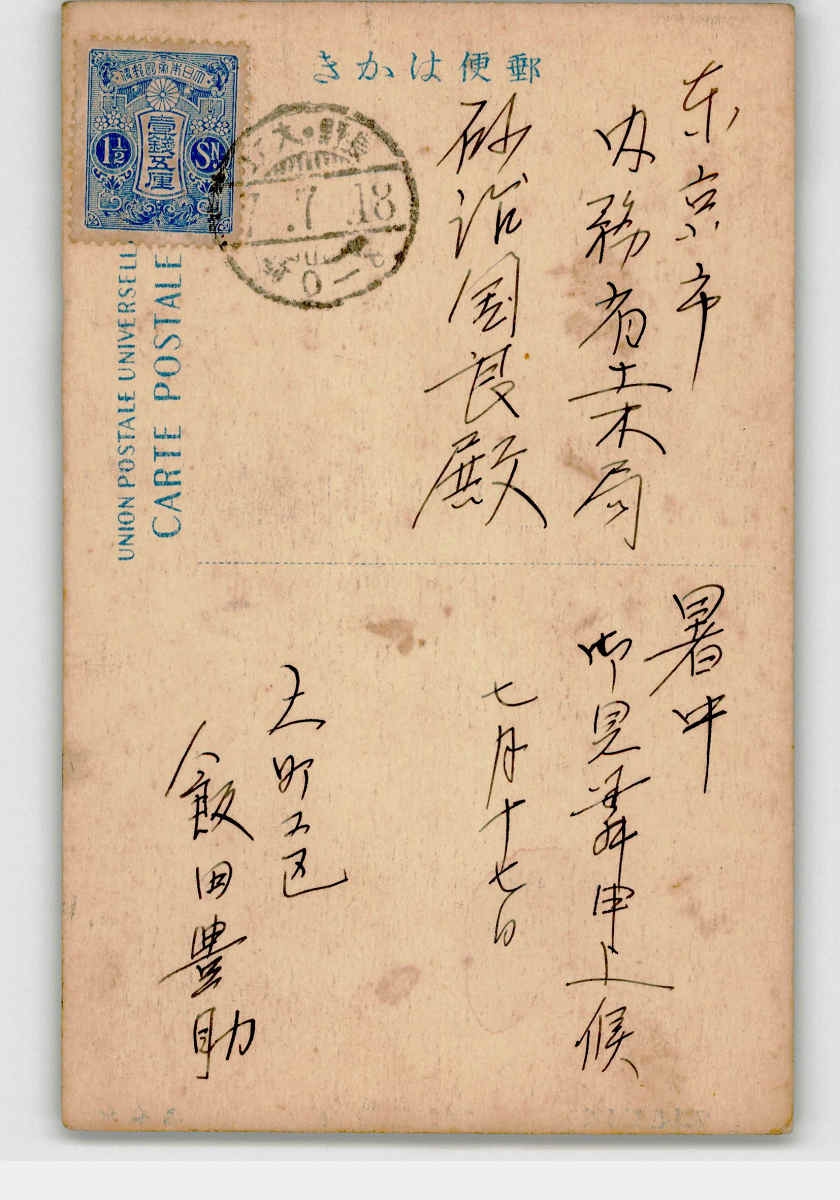 郵便はかき
大日本帝國郵便
壹錢五厘
1½ SN
7.7.18
UNION POSTALE UNIVERSELLE
CARTE POSTALE
東京市
内務省土木局
砂治國良殿
暑中
御見舞申上候
七月十七日
大町工区
飯田豊助